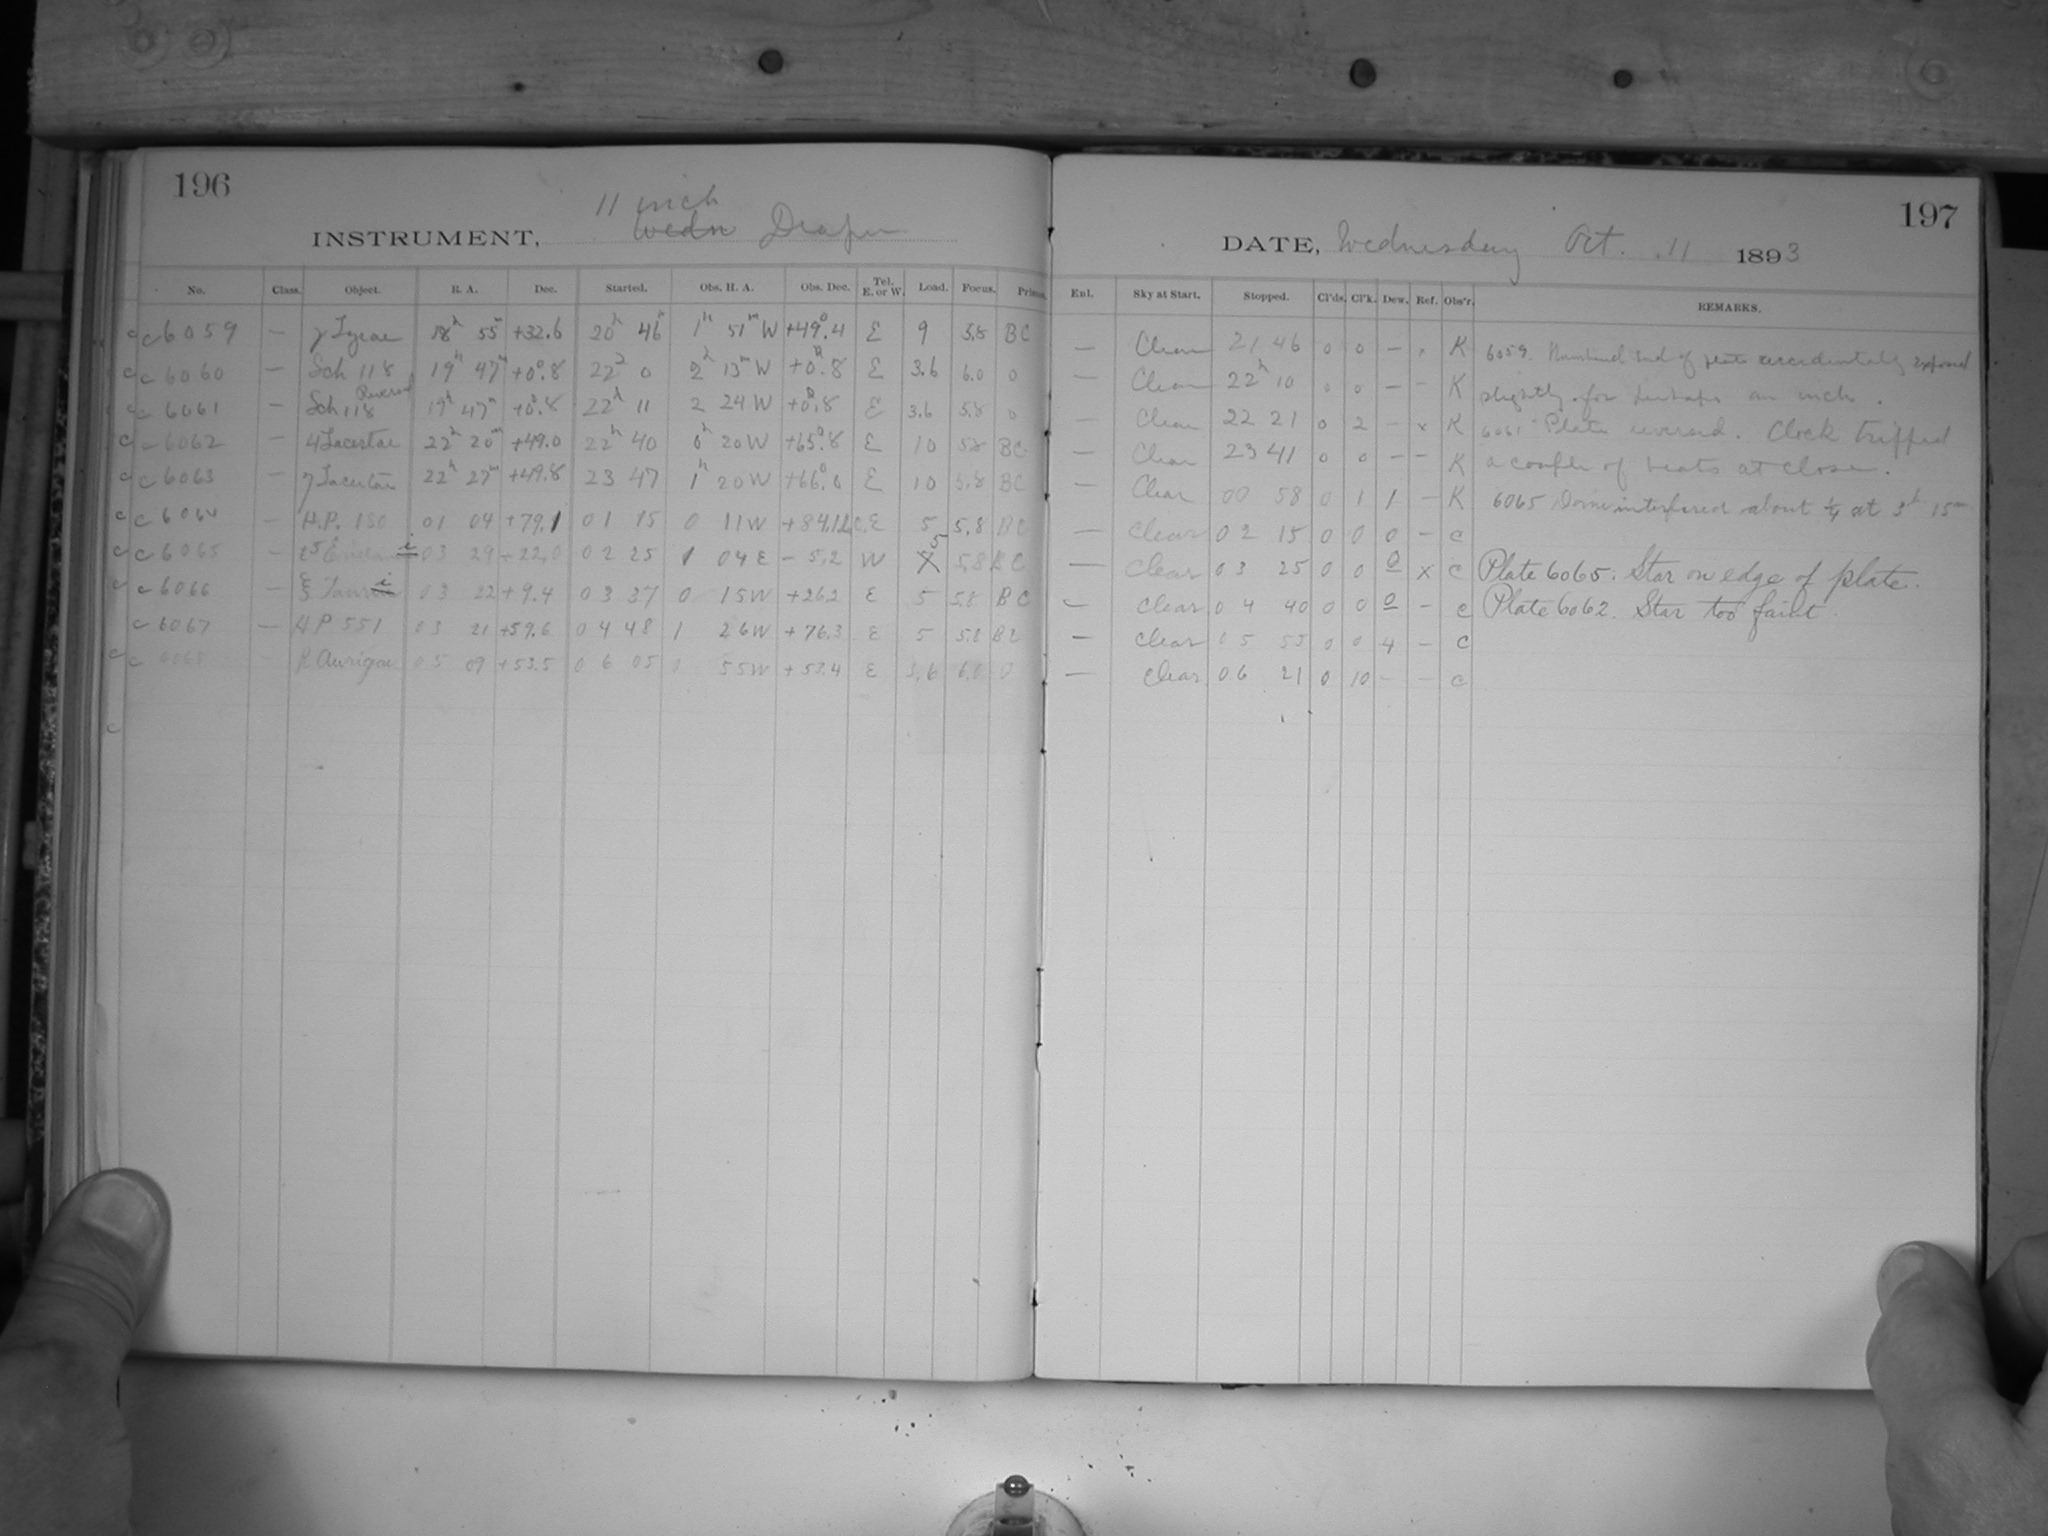 196
11 inch
INSTRUMENT, Wedn Draper
No. Class. Object. R. A. Dec. Started. Obs. H. A. Obs. Dec. Tel. E. or W. Load. Focus. Prisms
c c 6059 — γ Lyrae 18h 55m +32.6 20h 46m 1h 51m W +49°.4 E 9 5.8 BC
c c 6060 — Sch 118 19h 47m +0°.8 22h 0 2h 13m W +0°.8 E 3.6 6.0 0
c c 6061 — Sch 118 Reversed 19h 47m +0°.8 22h 11 2 24 W +0°.8 E 3.6 5.8 0
c c 6062 — 4 Lacertae 22h 20m +49.0 22h 40 0h 20 W +65°.8 E 10 5.8 BC
c c 6063 — 7 Lacertae 22h 27m +49.8 23 47 1h 20 W +66°.6 E 10 5.8 BC
c c 6064 — H.P. 180 01 04 +79.1 01 15 0 11 W +84.1 E 5 5.8 BC
c c 6065 — Eridani 03 29 -22.0 02 25 1 04 E -5.2 W 5 5.8 BC
c c 6066 — ξ Tauri 03 22 +9.4 03 37 0 15 W +26.2 E 5 5.8 BC
c 6067 — H P 551 03 21 +59.6 04 48 1 26 W +76.3 E 5 5.8 BC
c c 6068 — R Aurigae 05 09 +53.5 06 05 0 55 W +53.4 E 3.6 6.0 0
c
197
DATE, Wednesday Oct. 11 1893
Enl. Sky at Start. Stopped. Cl'ds. Cl'k. Dew. Ref. Obs'r. REMARKS.
— Clear 21 46 0 0 — K 6059. end of plate accidentally exposed
— Clear 22h 10 0 0 — — K slightly for perhaps an inch.
— Clear 22 21 0 2 — x K 6061 Plate reversed. Clock tripped
— Clear 23 41 0 0 — — K a couple of beats at close.
— Clear 00 58 0 1 1 — K 6065 Dome interfered about 1/4 at 3h 15m
— Clear 02 15 0 0 0 — C
— Clear 03 25 0 0 0 x C Plate 6065. Star on edge of plate.
— Clear 04 40 0 0 0 — C Plate 6062. Star too faint.
— Clear 05 55 0 0 4 — C
— Clear 06 21 0 10 — — C